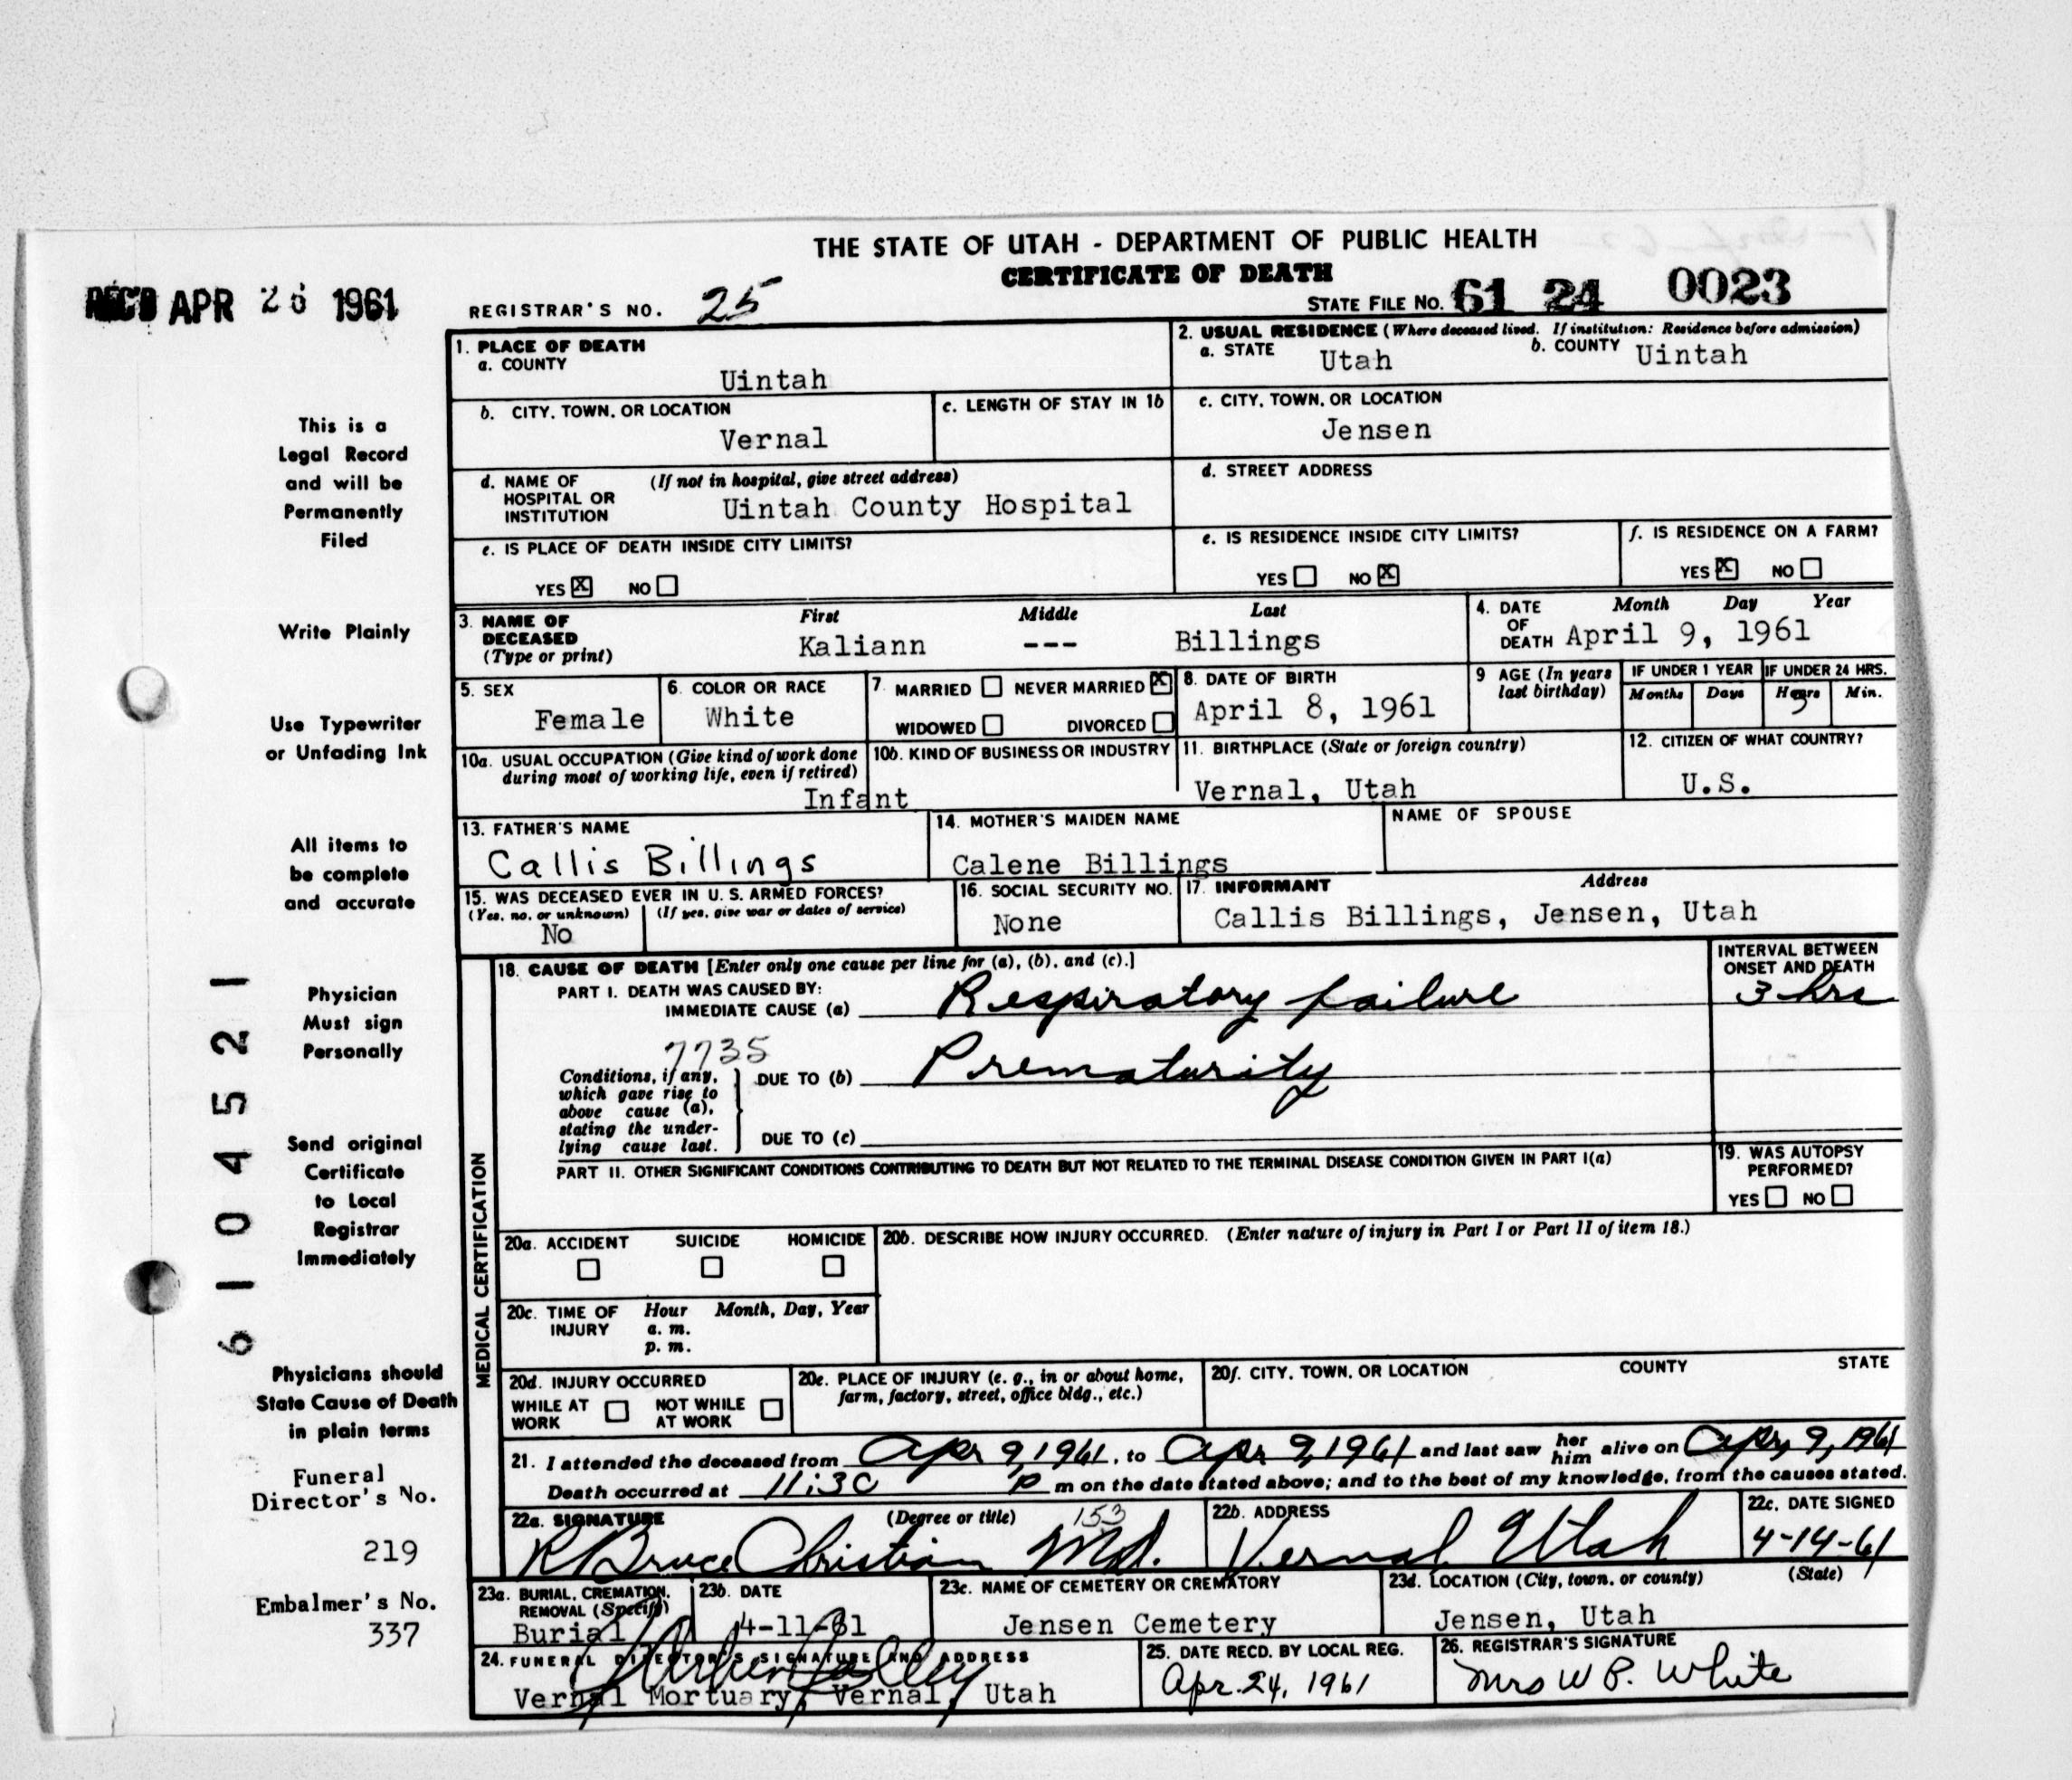 THE STATE OF UTAH - DEPARTMENT OF PUBLIC HEALTH
CERTIFICATE OF DEATH
REC'D APR 26 1961
REGISTRAR'S NO. 25
STATE FILE NO. 61 24 0023
1. PLACE OF DEATH
a. COUNTY
Uintah
2. USUAL RESIDENCE (Where deceased lived. If institution: Residence before admission)
a. STATE Utah b. COUNTY Uintah
b. CITY, TOWN, OR LOCATION
Vernal
c. LENGTH OF STAY IN 1b
c. CITY, TOWN, OR LOCATION
Jensen
d. NAME OF HOSPITAL OR INSTITUTION (If not in hospital, give street address)
Uintah County Hospital
d. STREET ADDRESS
e. IS PLACE OF DEATH INSIDE CITY LIMITS?
YES X NO
e. IS RESIDENCE INSIDE CITY LIMITS?
YES NO X
f. IS RESIDENCE ON A FARM?
YES X NO
3. NAME OF DECEASED (Type or print)
First Middle Last
Kaliann --- Billings
4. DATE OF DEATH Month Day Year
April 9, 1961
5. SEX
Female
6. COLOR OR RACE
White
7. MARRIED NEVER MARRIED X
WIDOWED DIVORCED
8. DATE OF BIRTH
April 8, 1961
9 AGE (In years last birthday)
IF UNDER 1 YEAR IF UNDER 24 HRS.
Months Days Hours Min.
10a. USUAL OCCUPATION (Give kind of work done during most of working life, even if retired)
Infant
10b. KIND OF BUSINESS OR INDUSTRY
11. BIRTHPLACE (State or foreign country)
Vernal, Utah
12. CITIZEN OF WHAT COUNTRY?
U.S.
13. FATHER'S NAME
Callis Billings
14. MOTHER'S MAIDEN NAME
Calene Billings
NAME OF SPOUSE
15. WAS DECEASED EVER IN U. S. ARMED FORCES?
(Yes, no, or unknown) (If yes, give war or dates of service)
No
16. SOCIAL SECURITY NO.
None
17. INFORMANT Address
Callis Billings, Jensen, Utah
MEDICAL CERTIFICATION
18. CAUSE OF DEATH [Enter only one cause per line for (a), (b), and (c).]
INTERVAL BETWEEN ONSET AND DEATH
PART I. DEATH WAS CAUSED BY:
IMMEDIATE CAUSE (a) Respiratory failure 3 hrs
7735
Conditions, if any, which gave rise to above cause (a), stating the underlying cause last.
DUE TO (b) Prematurity
DUE TO (c)
PART II. OTHER SIGNIFICANT CONDITIONS CONTRIBUTING TO DEATH BUT NOT RELATED TO THE TERMINAL DISEASE CONDITION GIVEN IN PART I(a)
19. WAS AUTOPSY PERFORMED?
YES NO
20a. ACCIDENT SUICIDE HOMICIDE
20b. DESCRIBE HOW INJURY OCCURRED. (Enter nature of injury in Part I or Part II of item 18.)
20c. TIME OF INJURY Hour Month, Day, Year
a. m.
p. m.
20d. INJURY OCCURRED
WHILE AT WORK NOT WHILE AT WORK
20e. PLACE OF INJURY (e. g., in or about home, farm, factory, street, office bldg., etc.)
20f. CITY, TOWN, OR LOCATION COUNTY STATE
21. I attended the deceased from Apr 9, 1961, to Apr 9, 1961 and last saw her him alive on Apr, 9, 1961
Death occurred at 11:30 P m on the date stated above; and to the best of my knowledge, from the causes stated.
22a. SIGNATURE (Degree or title) 153
R Bruce Christian Md.
22b. ADDRESS
Vernal Utah
22c. DATE SIGNED
4-14-61
23a. BURIAL, CREMATION, REMOVAL (Specify)
Burial
23b. DATE
4-11-61
23c. NAME OF CEMETERY OR CREMATORY
Jensen Cemetery
23d. LOCATION (City, town, or county) (State)
Jensen, Utah
24. FUNERAL DIRECTOR'S SIGNATURE AND ADDRESS
Vernal Mortuary, Vernal, Utah
25. DATE RECD. BY LOCAL REG.
Apr. 24, 1961
26. REGISTRAR'S SIGNATURE
Mrs W P. White
This is a
Legal Record
and will be
Permanently
Filed
Write Plainly
Use Typewriter
or Unfading Ink
All items to
be complete
and accurate
Physician
Must sign
Personally
Send original
Certificate
to Local
Registrar
Immediately
Physicians should
State Cause of Death
in plain terms
Funeral
Director's No.
219
Embalmer's No.
337
6104521